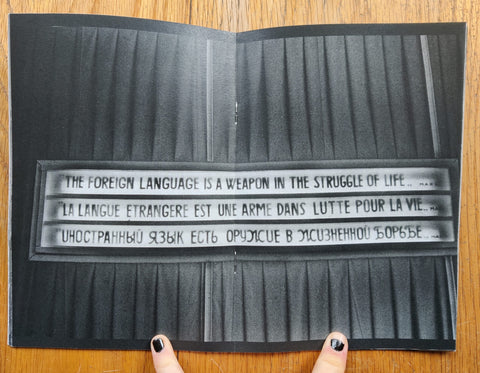 "THE FOREIGN LANGUAGE IS A WEAPON IN THE STRUGGLE OF LIFE..
"LA LANGUE ETRANGERE EST UNE ARME DANS LUTTE POUR LA VIE..
"ИНОСТРАННЫЙ ЯЗЫК ЕСТЬ ОРУЖИЕ В ЖИЗНЕННОЙ БОРЬБЕ..